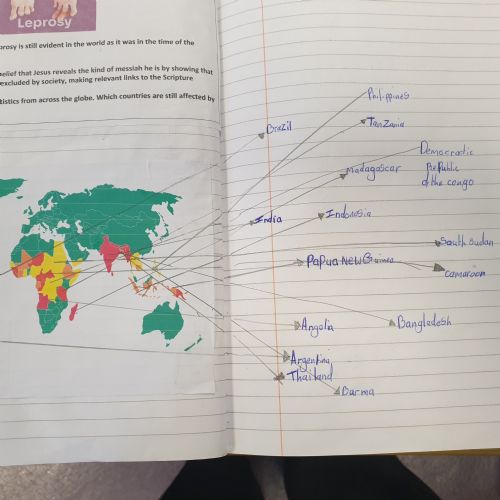 Leprosy
prosy is still evident in the world as it was in the time of the
belief that Jesus reveals the kind of messiah he is by showing that
excluded by society, making relevant links to the Scripture
tistics from across the globe. Which countries are still affected by
Philippines
Brazil
TanZania
Democratic
Republic
of the congo
madagascar
India
Indonesia
South Sudan
PaPua NEW Guinea
Camaroon
Angolia
Bangladesh
Argentina
Thailand
Burma